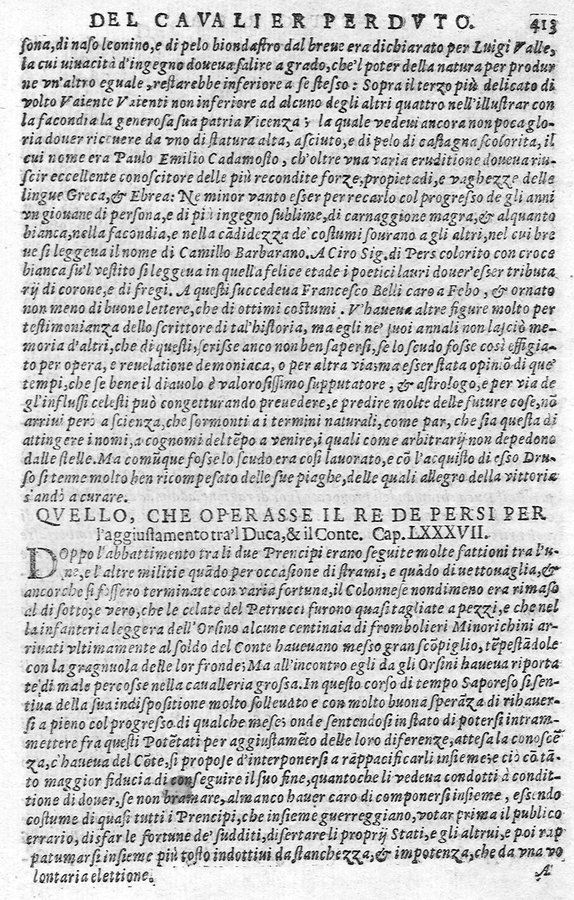 DEL CAVALIER PERDVTO. 413
sona, di naso leonino, e di pelo biondastro dal breue era dichiarato per Luigi Valle,
la cui viuacità d'ingegno doueua salire a grado, che'l poter della natura per produr
ne vn'altro eguale, restarebbe inferiore a se stesso: Sopra il terzo più delicato di
volto Vaiente Vaienti non inferiore ad alcuno degli altri quattro nell'illustrar con
la facondia la generosa sua patria Vicenza; la quale vedeui ancora non poca glo-
ria douer riceuere da vno di statura alta, asciuto, e di pelo di castagna scolorita, il
cui nome era Paulo Emilio Cadamosto, ch'oltre vna varia eruditione doueua riu-
scir eccellente conoscitore delle più recondite forze, propietadi, e vaghezze delle
lingue Greca, & Ebrea: Ne minor vanto esser per recarlo col progresso de gli anni
vn giouane di persona, e di più ingegno sublime, di carnaggione magra, & alquanto
bianca, nella facondia, e nella cãdidezza de' costumi sourano a gli altri, nel cui bre
ue si leggeua il nome di Camillo Barbarano. A Ciro Sig. di Pers colorito con croce
bianca su'l vestito si leggeua in quella felice etade i poetici lauri douer'esser tributa
rij di corone, e di fregi. A questi succedeua Francesco Belli caro a Febo, & ornato
non meno di buone lettere, che di ottimi costumi. V'haueua altre figure molto per
testimonianza dello scrittore di tal'historia, ma egli ne' suoi annali non lasciò me-
moria d'altri, che di questi, scrisse anco non ben sapersi, se lo scudo fosse così effigia-
to per opera, e reuelatione demoniaca, o per altra via; ma esser stata opiniõ di que'
tempi, che se bene il diauolo è valorosissimo supputatore, & astrologo, e per via de
gl'influssi celesti può congetturando preuedere, e predire molte delle future cose, nõ
arriui però a scienza, che sormonti a i termini naturali, come par, che sia questa di
attingere i nomi, a cognomi del tẽpo a venire, i quali come arbitrarij non depedono
dalle stelle. Ma comũque fosse lo scudo era così lauorato, e cõ l'acquisto di esso Dru-
so si tenne molto ben ricompesato delle sue piaghe, delle quali allegro della vittoria
s'andò a curare.
QVELLO, CHE OPERASSE IL RE DE PERSI PER
l'aggiustamento tra'l Duca, & il Conte. Cap. LXXXVII.
DOppo l'abbattimento tra li due Prencipi erano seguite molte fattioni tra l'u-
ne, e l'altre militie quãdo per occasione di strami, e quãdo di uettouaglia, &
ancorche si fossero terminate con varia fortuna, il Colonnese nondimeno era rimaso
al di sotto; e vero, che le celate del Petrucci furono quasi tagliate a pezzi, e che nel
la infanteria leggera dell'Orsino alcune centinaia di frombolieri Minorichini ar-
riuati vltimamente al soldo del Conte haueuano messo gran scõpiglio, tẽpestãdole
con la gragnuola delle lor fronde; Ma all'incontro egli da gli Orsini haueua riporta
te di male percosse nella cavalleria grossa. In questo corso di tempo Saporeso si sen-
tiua della sua indispositione molto solleuato e con molto buona sperãza di rihauer-
si a pieno col progresso di qualche mese; onde sentendosi in stato di potersi intram-
mettere fra questi Potẽtati per aggiustamẽto delle loro diferenze, attesa la conoscẽ
za, c'haueua del Cõte, si propose d'interponersi a rappacificarli insieme; e ciò cõ tã-
to maggior fiducia di conseguire il suo fine, quantoche li vedeua condotti à condit-
tione di douer, se non bramare, almanco hauer caro di componersi insieme, essẽdo
costume di quasi tutti i Prencipi, che insieme guerreggiano, votar prima il publico
errario, disfar le fortune de' sudditi, disertare li proprij Stati, e gli altrui, e poi rap
patumarsi insieme più tosto indottiui da stanchezza, & impotenza, che da vna vo
lontaria elettione. A